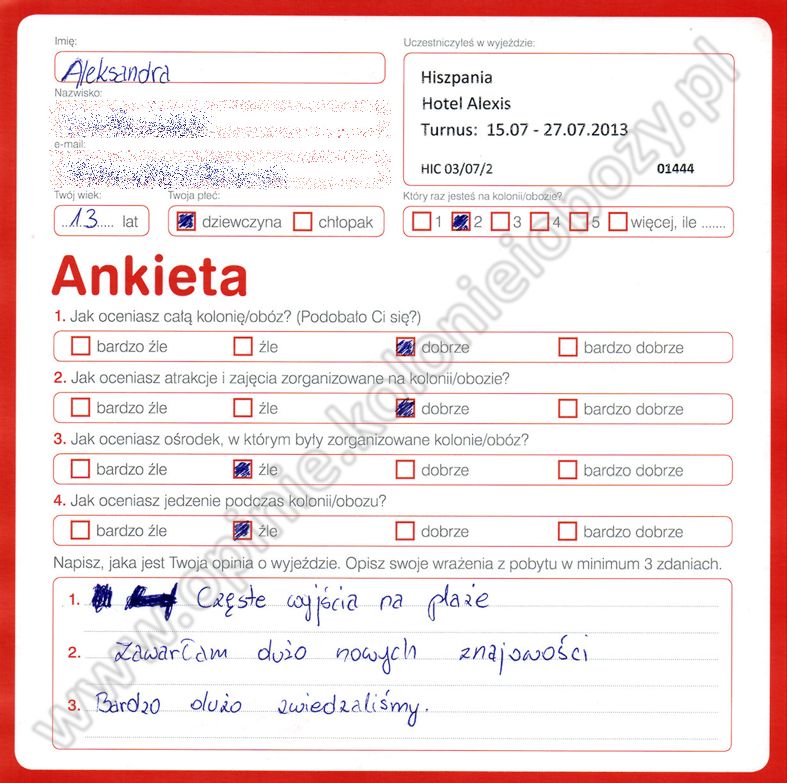 Imię:
Aleksandra
Nazwisko:
e-mail:
Twój wiek:
13 lat
Twoja płeć:
dziewczyna chłopak
Uczestniczyłeś w wyjeździe:
Hiszpania
Hotel Alexis
Turnus: 15.07 - 27.07.2013
HIC 03/07/2 01444
Który raz jesteś na kolonii/obozie?
1 2 3 4 5 więcej, ile .......
Ankieta
1. Jak oceniasz całą kolonię/obóz? (Podobało Ci się?)
bardzo źle źle dobrze bardzo dobrze
2. Jak oceniasz atrakcje i zajęcia zorganizowane na kolonii/obozie?
bardzo źle źle dobrze bardzo dobrze
3. Jak oceniasz ośrodek, w którym były zorganizowane kolonie/obóz?
bardzo źle źle dobrze bardzo dobrze
4. Jak oceniasz jedzenie podczas kolonii/obozu?
bardzo źle źle dobrze bardzo dobrze
Napisz, jaka jest Twoja opinia o wyjeździe. Opisz swoje wrażenia z pobytu w minimum 3 zdaniach.
1. Częste wyjścia na plaże
2. Zawarłam dużo nowych znajowości
3. Bardzo dużo zwiedzaliśmy.
www.opinie.kolonieiobozy.pl